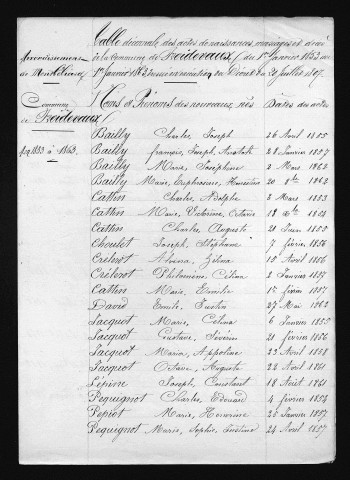 Table décennale des actes de naissances, mariages et décès
de la Commune de Froidevaux, du 1er Janvier 1853 au
1er Janvier 1863 dressée en exécution du Décret du 20 Juillet 1807.
Arrondissement
de Montbéliard
Commune
de Froidevaux
de 1853 à 1863.
Noms et Prénoms des nouveaux nés Dates des actes
Bailly Charles Joseph 26 Avril 1855
Bailly françois, Joseph, Anatole 28 Janvier 1857
Bailly Marie Joséphine 2 Mars 1862
Bailly Marie, Euphrosine, 20 8bre 1862
Cattin Charles, Adolphe 2 Mars 1853
Cattin Marie, Victorine, 18 1854
Cattin Charles Auguste 21 Juin 1855
Choulet Joseph, Stéphane 7 février 1856
Crelerot Zelina 15 Avril 1856
Crelerot Philomène Célina 2 Janvier 1857
Cattin Marie Emilie 15 février 1857
David Emile Justin 27 Mai 1862
Jacquot Marie, Célina 6 Janvier 1855
Jacquot Gustave, Séverin 21 février 1856
Jacquot Maria, Appoline 23 Avril 1858
Jacquot Octave, Auguste 22 Avril 1861
Joseph, Constant 18 Août 1861
Pequignot Charles, Edouard 4 février 1854
Pepiot Marie, Honorine 25 Janvier 1857
Pequignot Marie, Sophie, Justine 24 Avril 1857